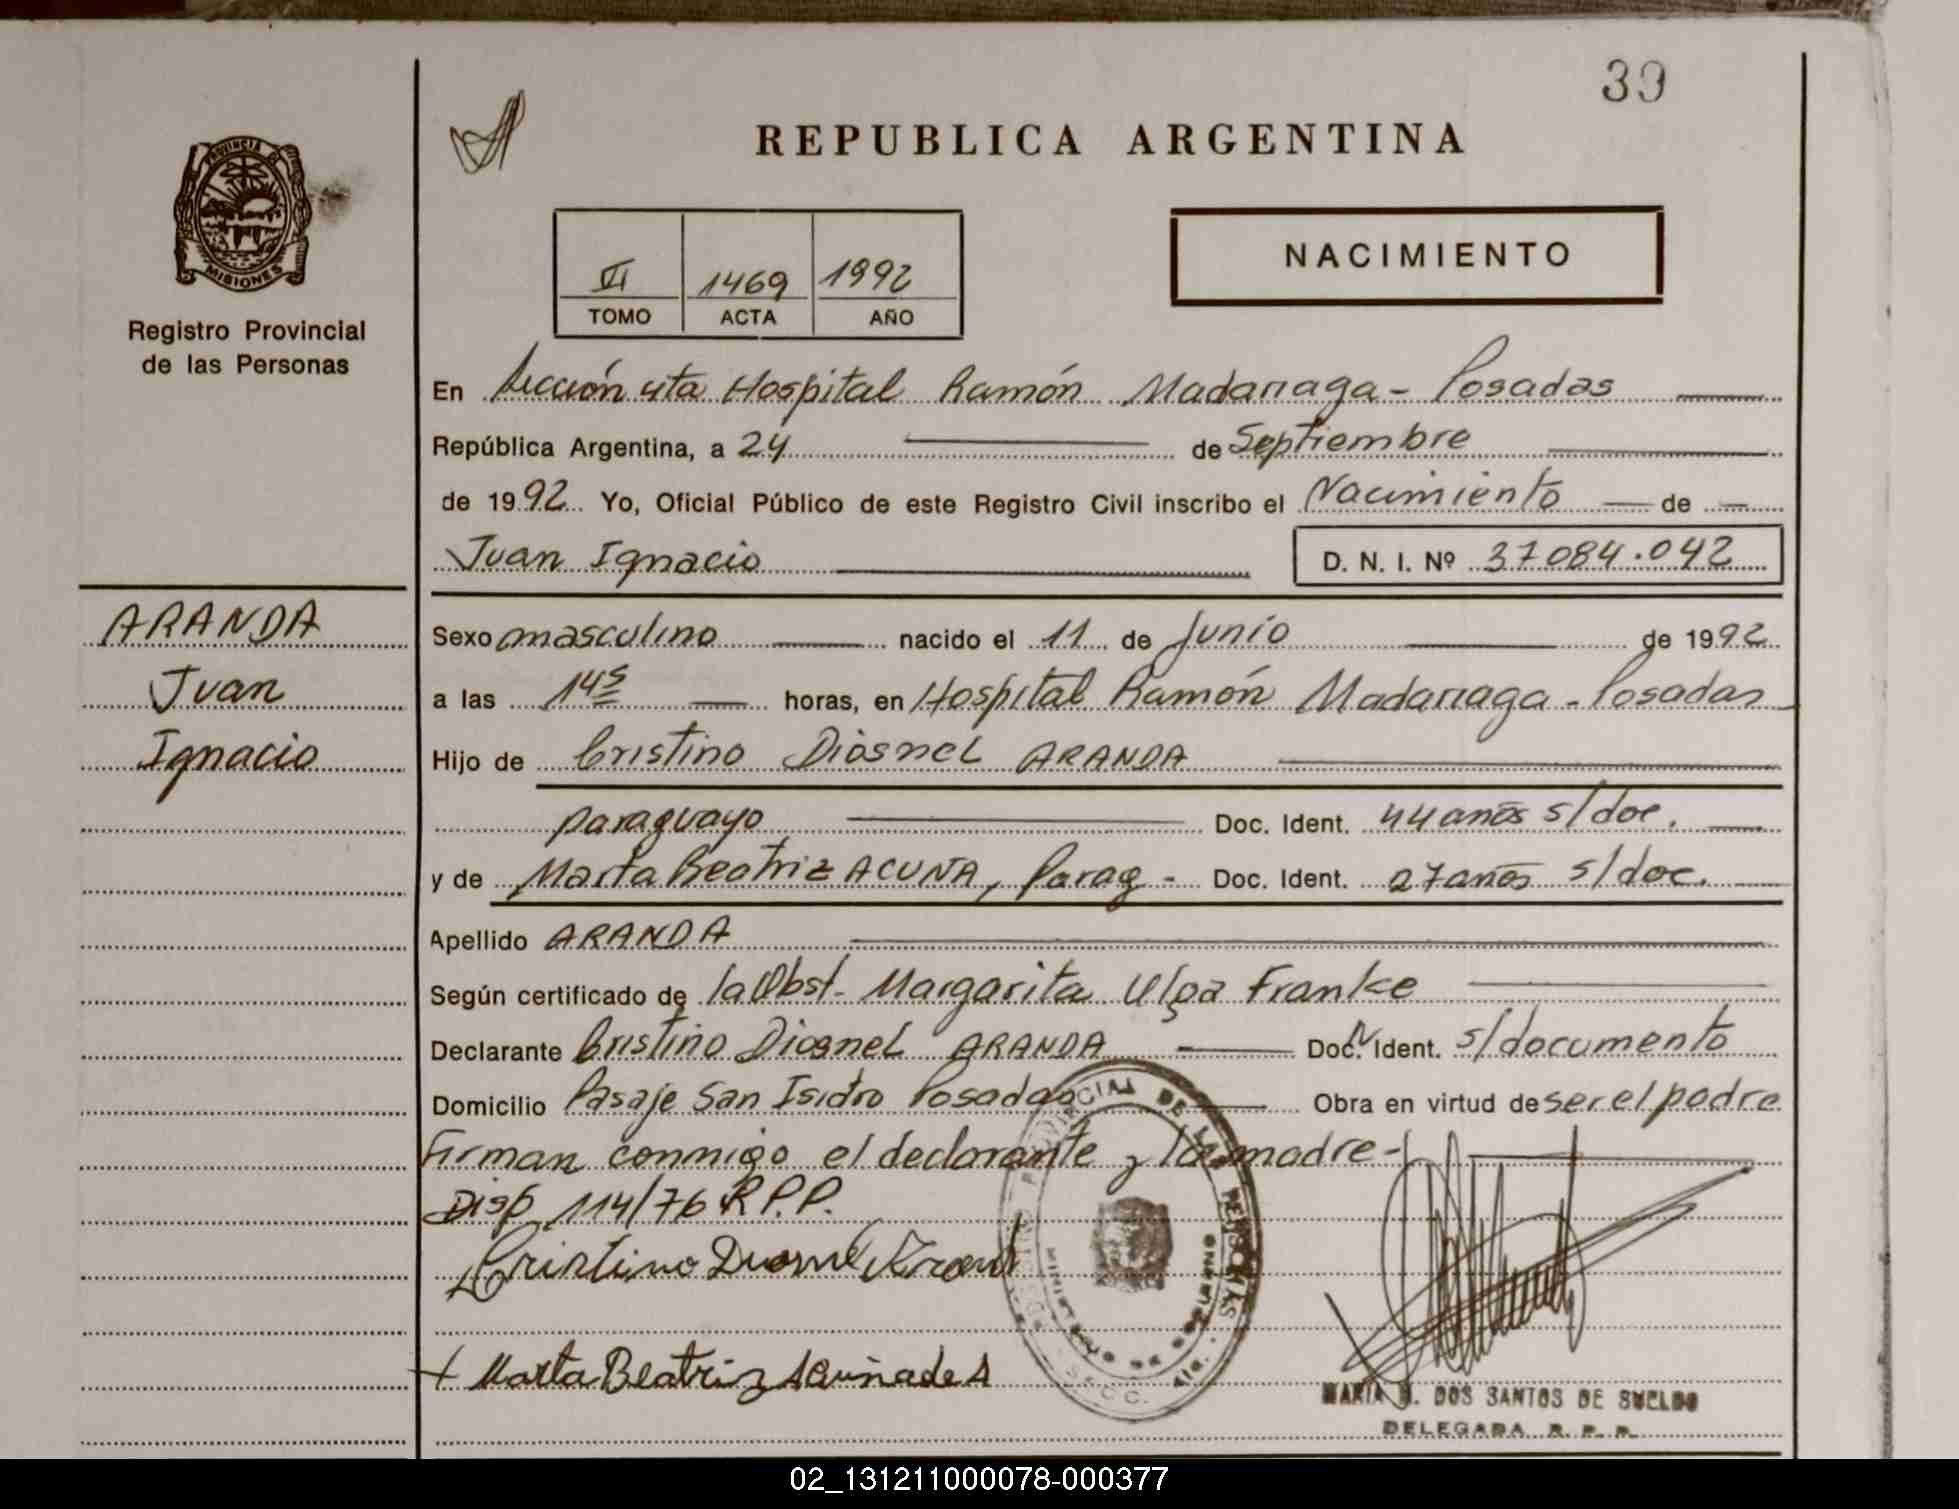 39
REPUBLICA ARGENTINA
PROVINCIA DE
MISIONES
Registro Provincial
de las Personas
VI 1469 1992
TOMO ACTA AÑO
NACIMIENTO
En Sección 4ta Hospital Ramón Madariaga - Posadas
República Argentina, a 24 de Septiembre
de 1992 Yo, Oficial Público de este Registro Civil inscribo el Nacimiento de
Juan Ignacio D. N. I. Nº 37084.042
ARANDA
Juan
Ignacio
Sexo masculino nacido el 11 de Junio de 1992
a las 14 5 horas, en Hospital Ramón Madariaga - Posadas
Hijo de Cristino Diosnel ARANDA
paraguayo Doc. Ident. 44 años s/doc.
y de Marta Beatriz ACUÑA, Parag - Doc. Ident. 27 años s/doc.
Apellido ARANDA
Según certificado de la Obst. Margarita Franke
Declarante Cristino Diosnel ARANDA Doc. Ident. s/documento
Domicilio Pasaje San Isidro Posadas Obra en virtud de ser el padre
Firman conmigo el declarante y la madre -
Disp 114/76 R.P.P.
Cristino Diosnel Arand
+ Marta Beatriz Acuña de A
PROVINCIAL DE LAS PERSONAS
MARIA DOS SANTOS DE SUELDO
DELEGADA R. P. P.
02_131211000078-000377